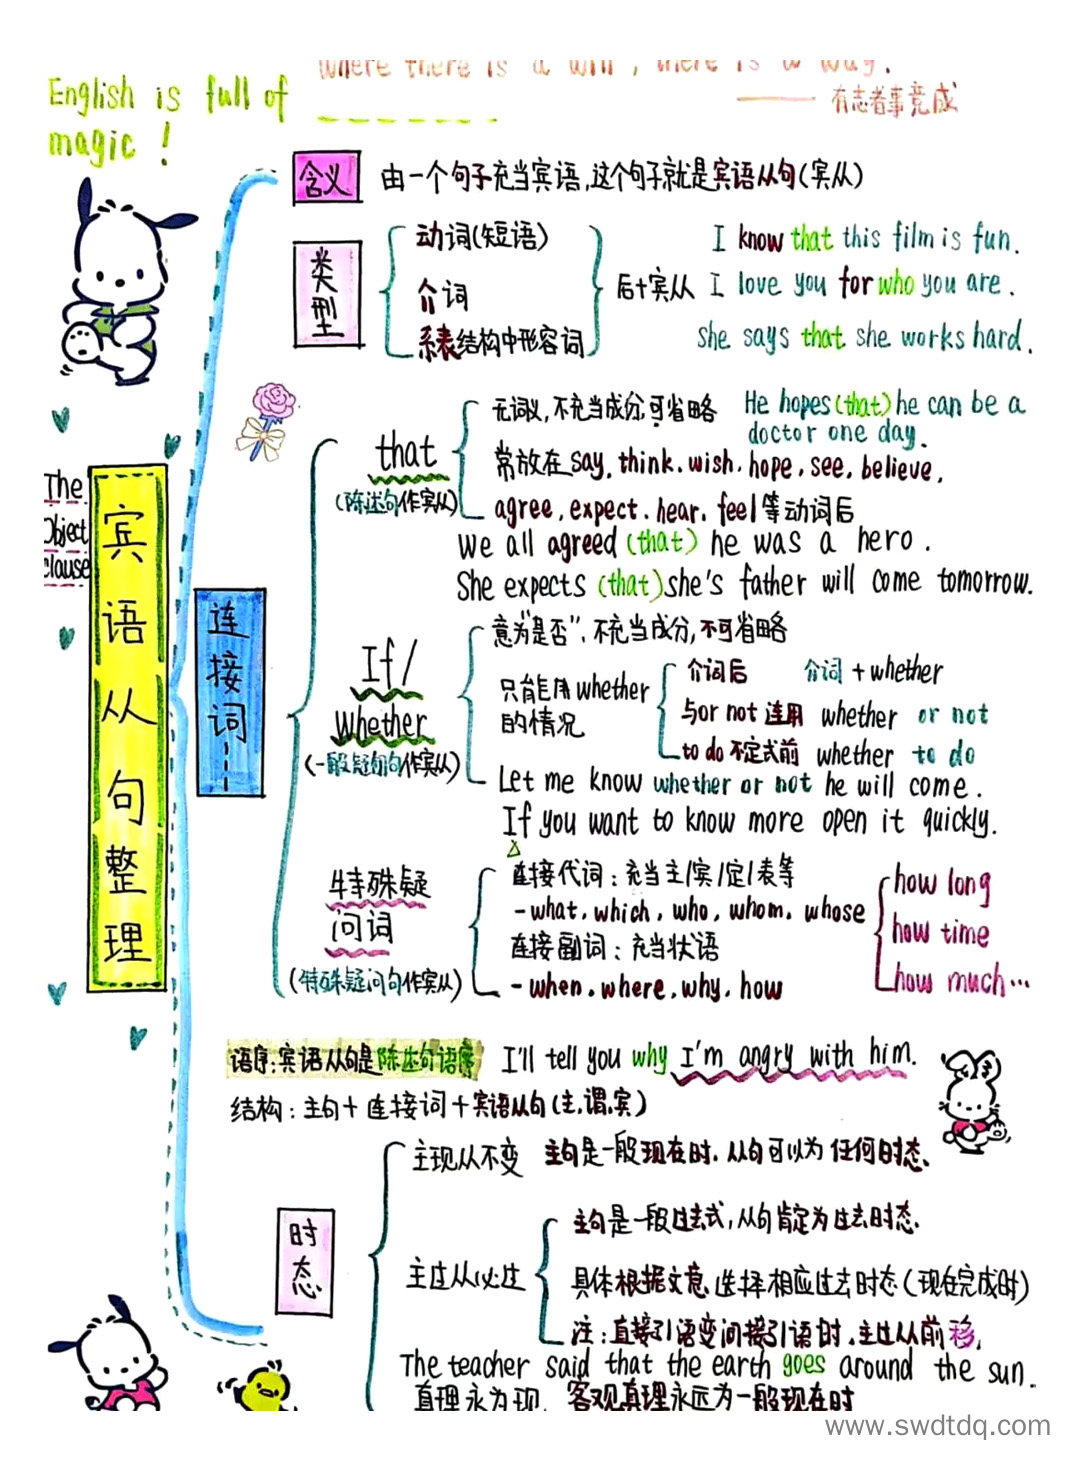 Where there is a will, there is a way.
English is full of
magic!
—— 有志者事竟成
含义
由一个句子充当宾语,这个句子就是宾语从句(宾从)
类型
动词(短语)
介词
系表结构中形容词
后+宾从
I know that this film is fun.
I love you for who you are.
she says that she works hard.
The
Object
clause
宾语从句整理
连接词
that
(陈述句作宾从)
无词义,不充当成分,可省略
He hopes (that) he can be a
doctor one day.
常放在say.think.wish.hope.see.believe.
agree.expect.hear.feel等动词后
We all agreed (that) he was a hero.
She expects (that) she's father will come tomorrow.
If/
whether
(一般疑问句作宾从)
意为"是否",不充当成分,不可省略
只能用whether
的情况
介词后 介词+whether
与or not 连用 whether or not
to do 不定式前 whether to do
Let me know whether or not he will come.
If you want to know more open it quickly.
特殊疑
问词
(特殊疑问句作宾从)
连接代词:充当主/宾/定/表等
-what.which.who.whom.whose
连接副词:充当状语
-when.where.why.how
how long
how time
how much…
语序:宾语从句是陈述句语序
I'll tell you why I'm angry with him.
结构:主句+连接词+宾语从句(主.谓.宾)
时态
主现从不变 主句是一般现在时.从句可以为任何时态.
主过从必过
主句是一般过去式,从句肯定为过去时态.
具体根据文意选择相应过去时态(现在完成时)
注:直接引语变间接引语时.主过从前移.
The teacher said that the earth goes around the sun.
真理永为现.客观真理永远为一般现在时
www.swdtdq.com